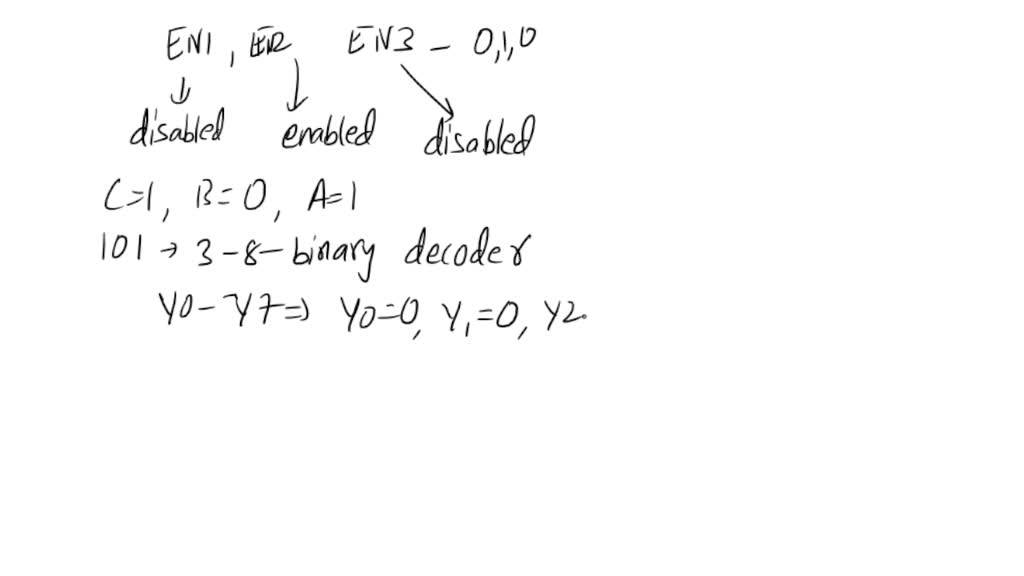 EN1, EN2 EN3 - 0,1,0
disabled enabled disabled
C=1, B=0, A=1
101 → 3-8-binary decoder
Y0-Y7⇒ Y0=0, Y1=0, Y2.